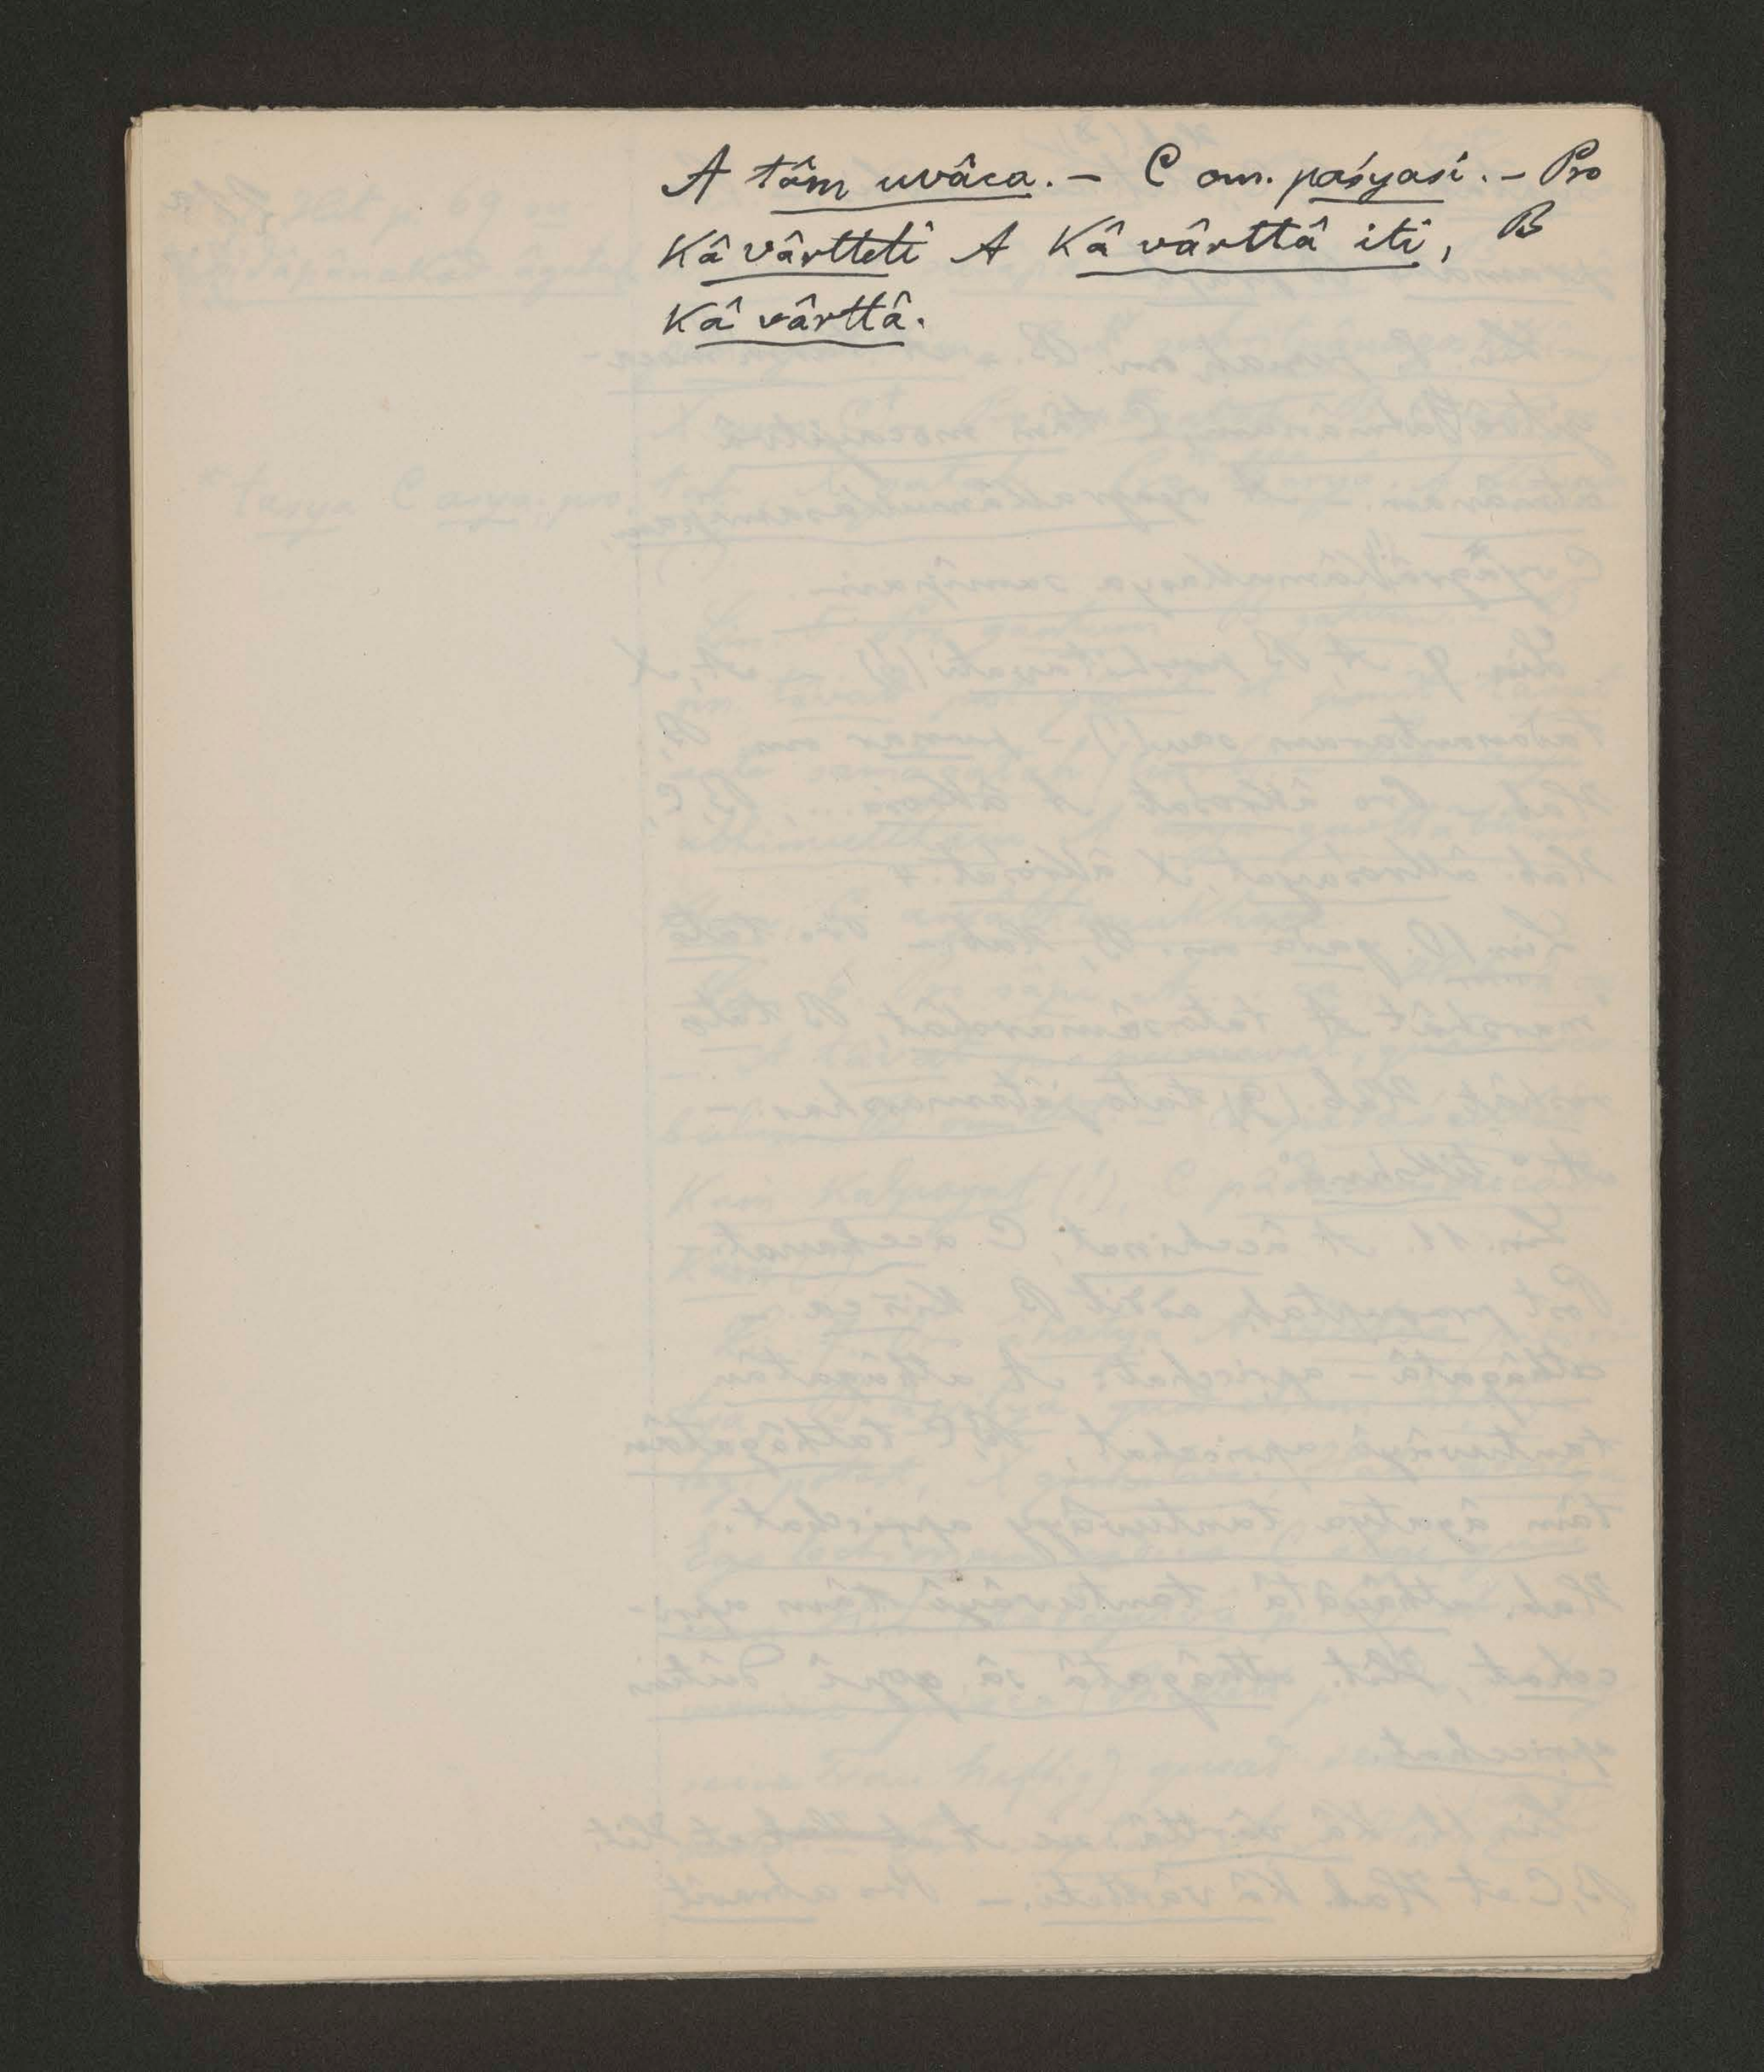 A tâm uvâca. – C om. paśyasi. – Pro
Kâ vârtteti A Kâ vârttâ iti, B
Kâ vârttâ.